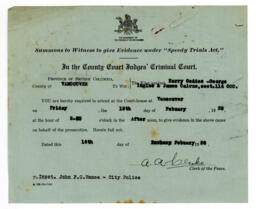 Summons to Witness to give Evidence under "Speedy Trials Act."
In the County Court Judges' Criminal Court.
PROVINCE OF BRITISH COLUMBIA,
COUNTY OF VANCOUVER To Wit: Harry Geddes -George
Ingles & James Cairns, sect. 114 CCC.
You are hereby required to attend at the Courthouse at Vancouver
on Friday the day of February 19
at the hour of o'clock in the After noon, to give evidence in the above cause
on behalf of the prosecution. Herein fail not.
Dated this 16th day of February 19
Clerk of the Peace.
To Inspt. John F.C.Vance - City Police